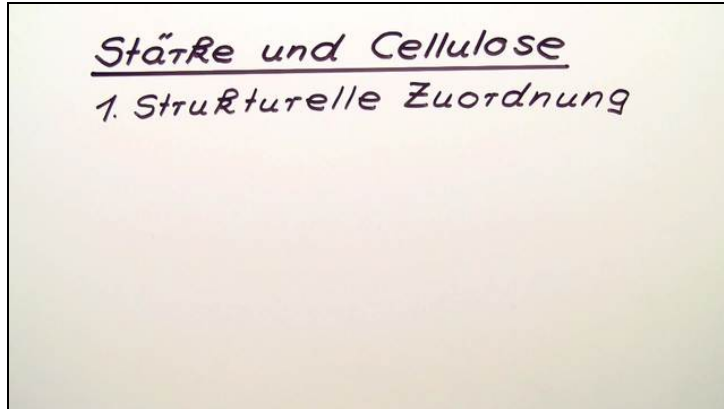 Stärke und Cellulose
1. Strukturelle Zuordnung